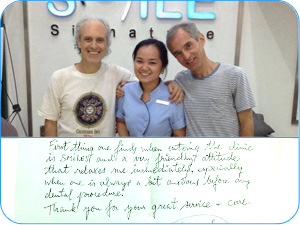 SMILE
Signature
First thing one finds when entering the clinic
is SMILES!! and a very friendly attitude
that relaxes me immediately, especially
when one is always a bit anxious before any
dental procedure.
Thank you for your great service + care